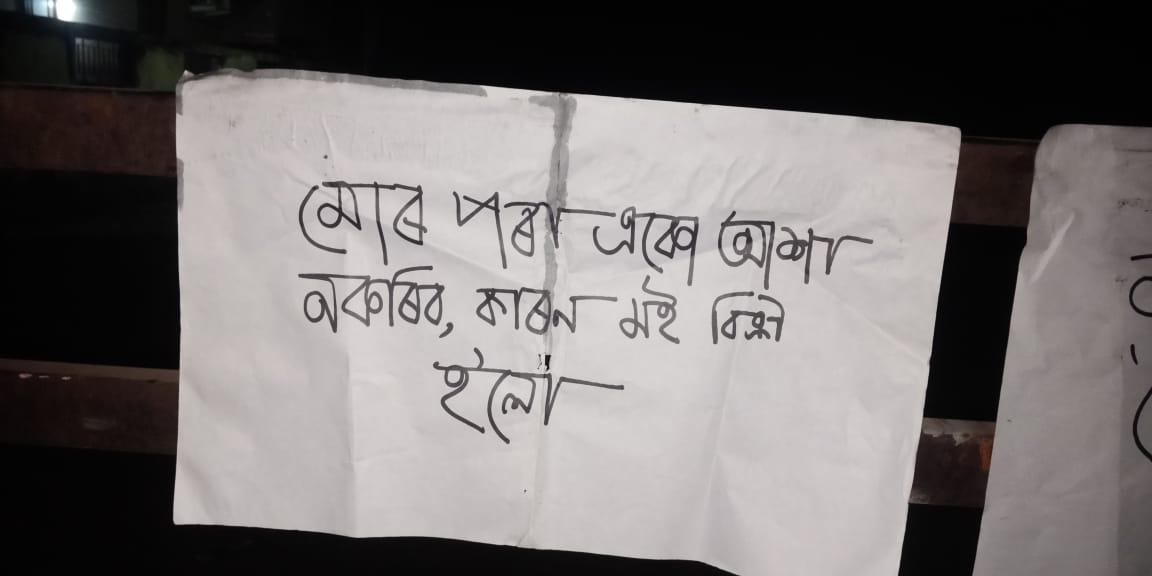 মোৰ পৰা একো আশা
নকৰিব, কাৰন মই বিক্ৰী
হ'লো